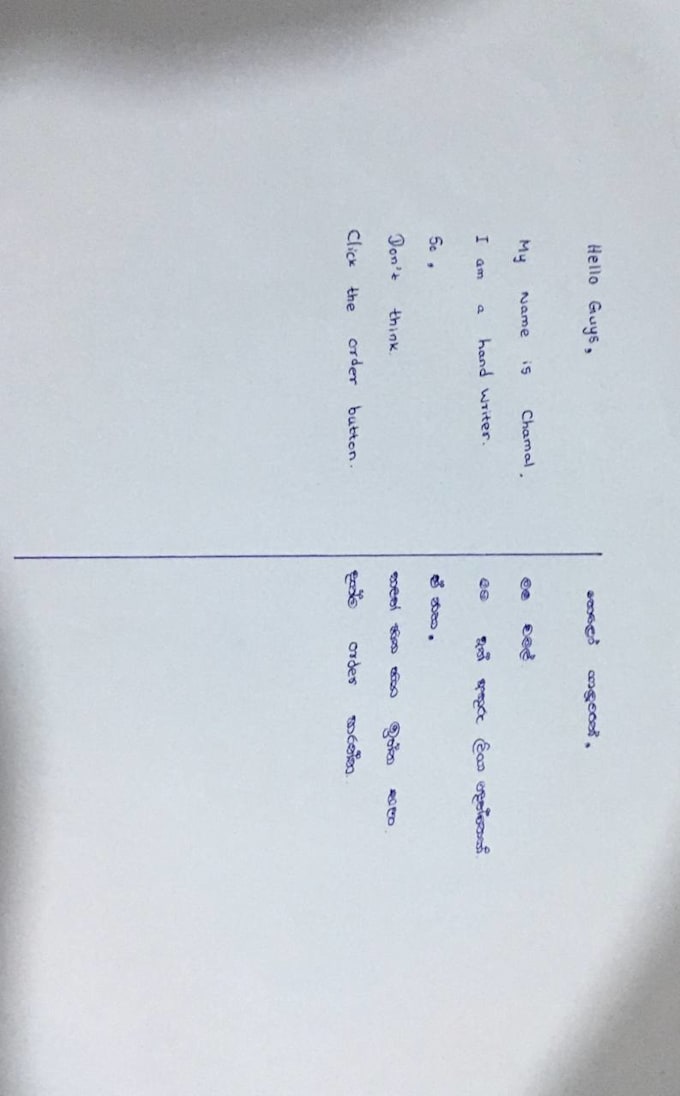 Hello Guys,
My Name is Chamal.
I am a hand writer.
So,
Don't think.
Click the order button.
හෙලෝ යාලුවනේ,
මම චමල්
මම අත් අකුරු ලියන්නෙක්.
ඒ නිසා,
හිත හිතා ඉන්න එපා.
දැන්ම order කරන්න.